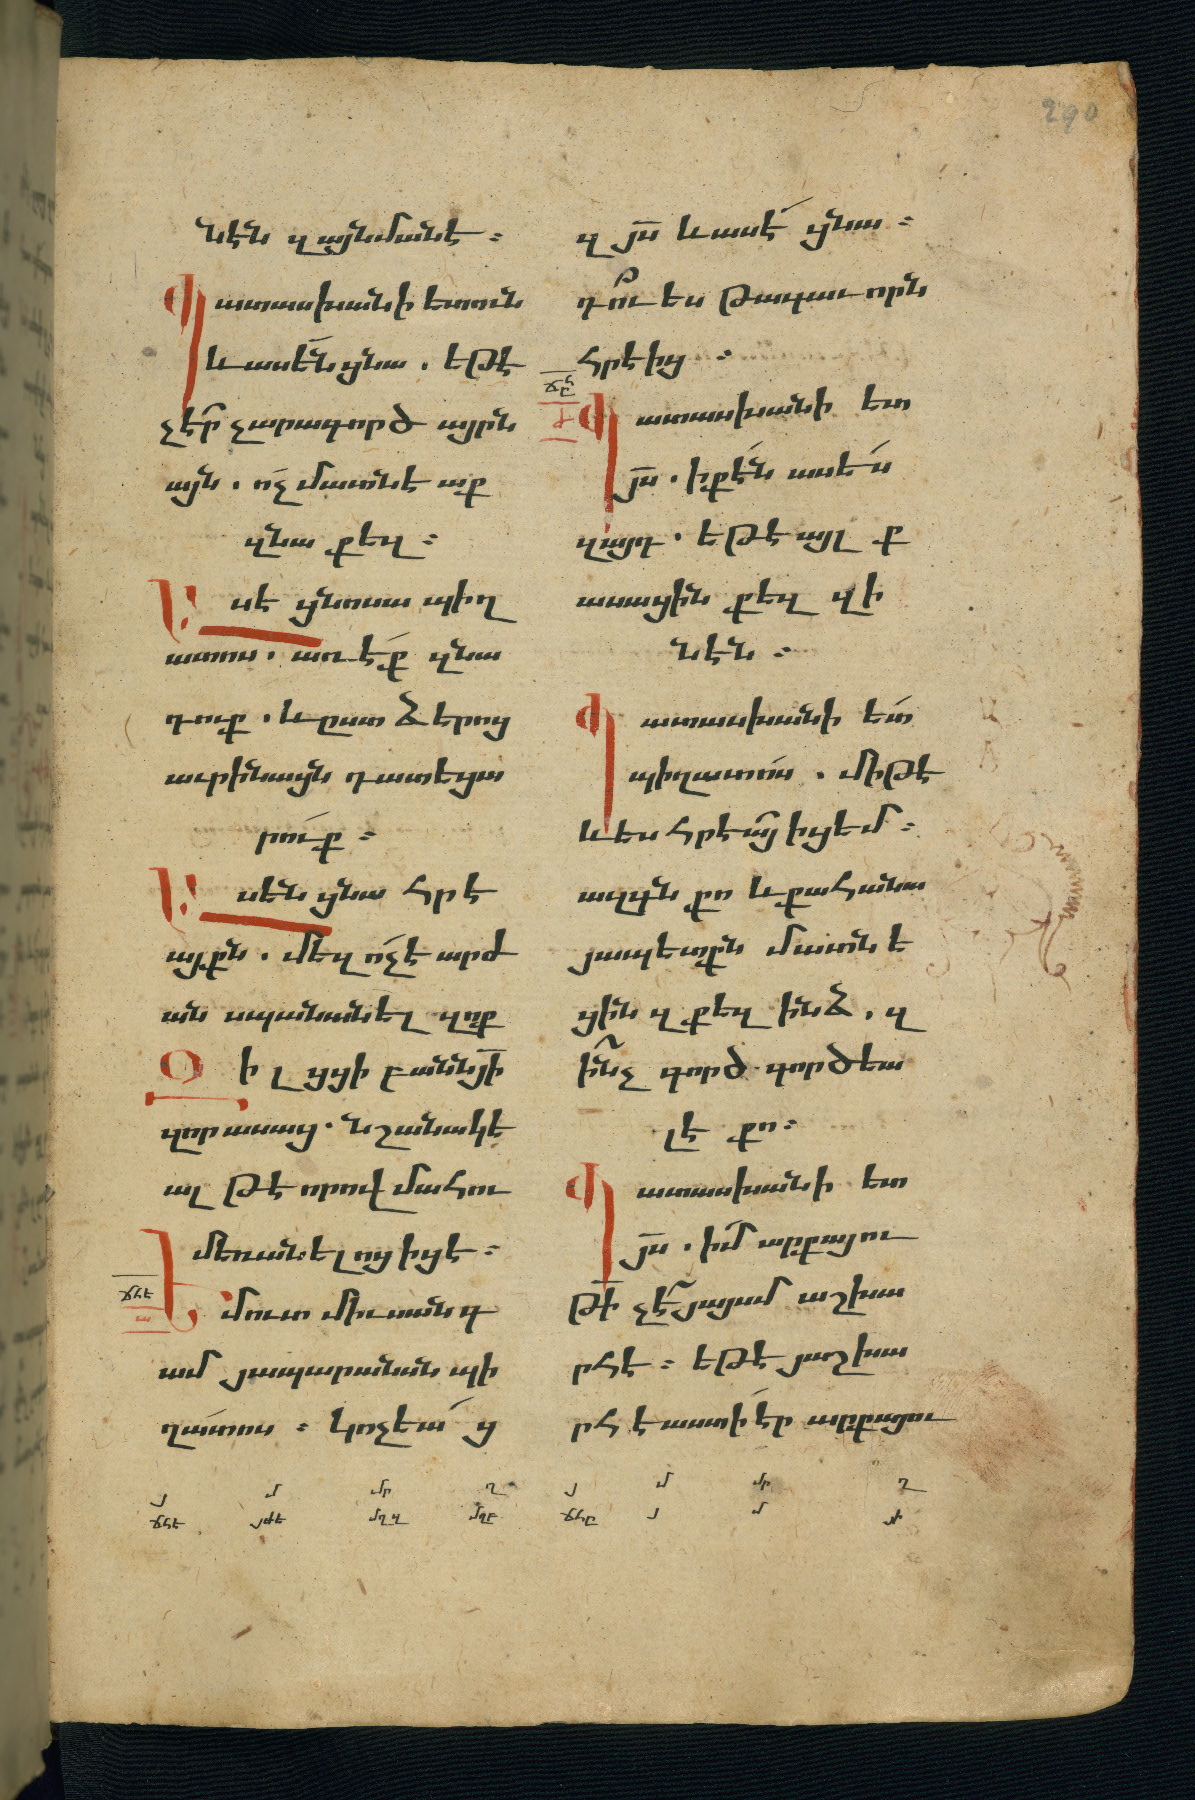 290
նէն զայնմանէ ։
Պատասխանի ետուն
և ասեն ցնա . եթէ
չէր չարագործ այրն
այն . ոչ մատնէաք
զնա քեզ ։
Ասէ ցնոսա պիղ
ատոս . առէք զնա
դուք . և ըստ ձերոց
աւրինացն դատեցա
րուք ։
Ասեն ցնա հրէ
այքն . մեզ ոչ է արժ
ան սպանանել զոք
Զի լցցի բանն յի
զոր ասաց . նշանակէ
ալ թէ որով մահու
մեռանելոց իցէ ։
ճհէ
Եմուտ միւսանգ
ամ յապարանսն պի
ղատոս ։ կոչեաց
յ մ մր ղ
զյս և ասէ ցնա ։
դու ես թագաւորն
հրէից ։
ճհը
Պատասխանի ետ
յս . ի քէն ասես
զայդ . եթէ այլ ք
ասացին քեզ զի
նէն ։
Պատասխանի ետ
պիղատոս . միթէ
և ես հրեայ իցեմ ։
ազգն քո և քահանա
յապետքն մատնե
ցին զքեզ ինձ . զ
ինչ գործ գործեա
լ է քո ։
Պատասխանի ետ
յս . իմ արքայու
թի չէ յայսմ աշխա
րհէ ։ եթէ յաշխա
րհէ աստի էր արքայու
յ մ մր ղ